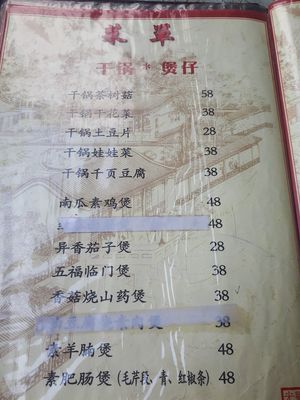 菜單
干锅*煲仔
干锅茶树菇 58
干锅干花菜 38
干锅土豆片 28
干锅娃娃菜 38
干锅千页豆腐 38
南瓜素鸡煲 48
48
异香茄子煲 38
五福临门煲 38
香菇烧山药煲 38
肉煲 38
素羊腩煲 48
素肥肠煲(毛芹段、青、红椒条) 48